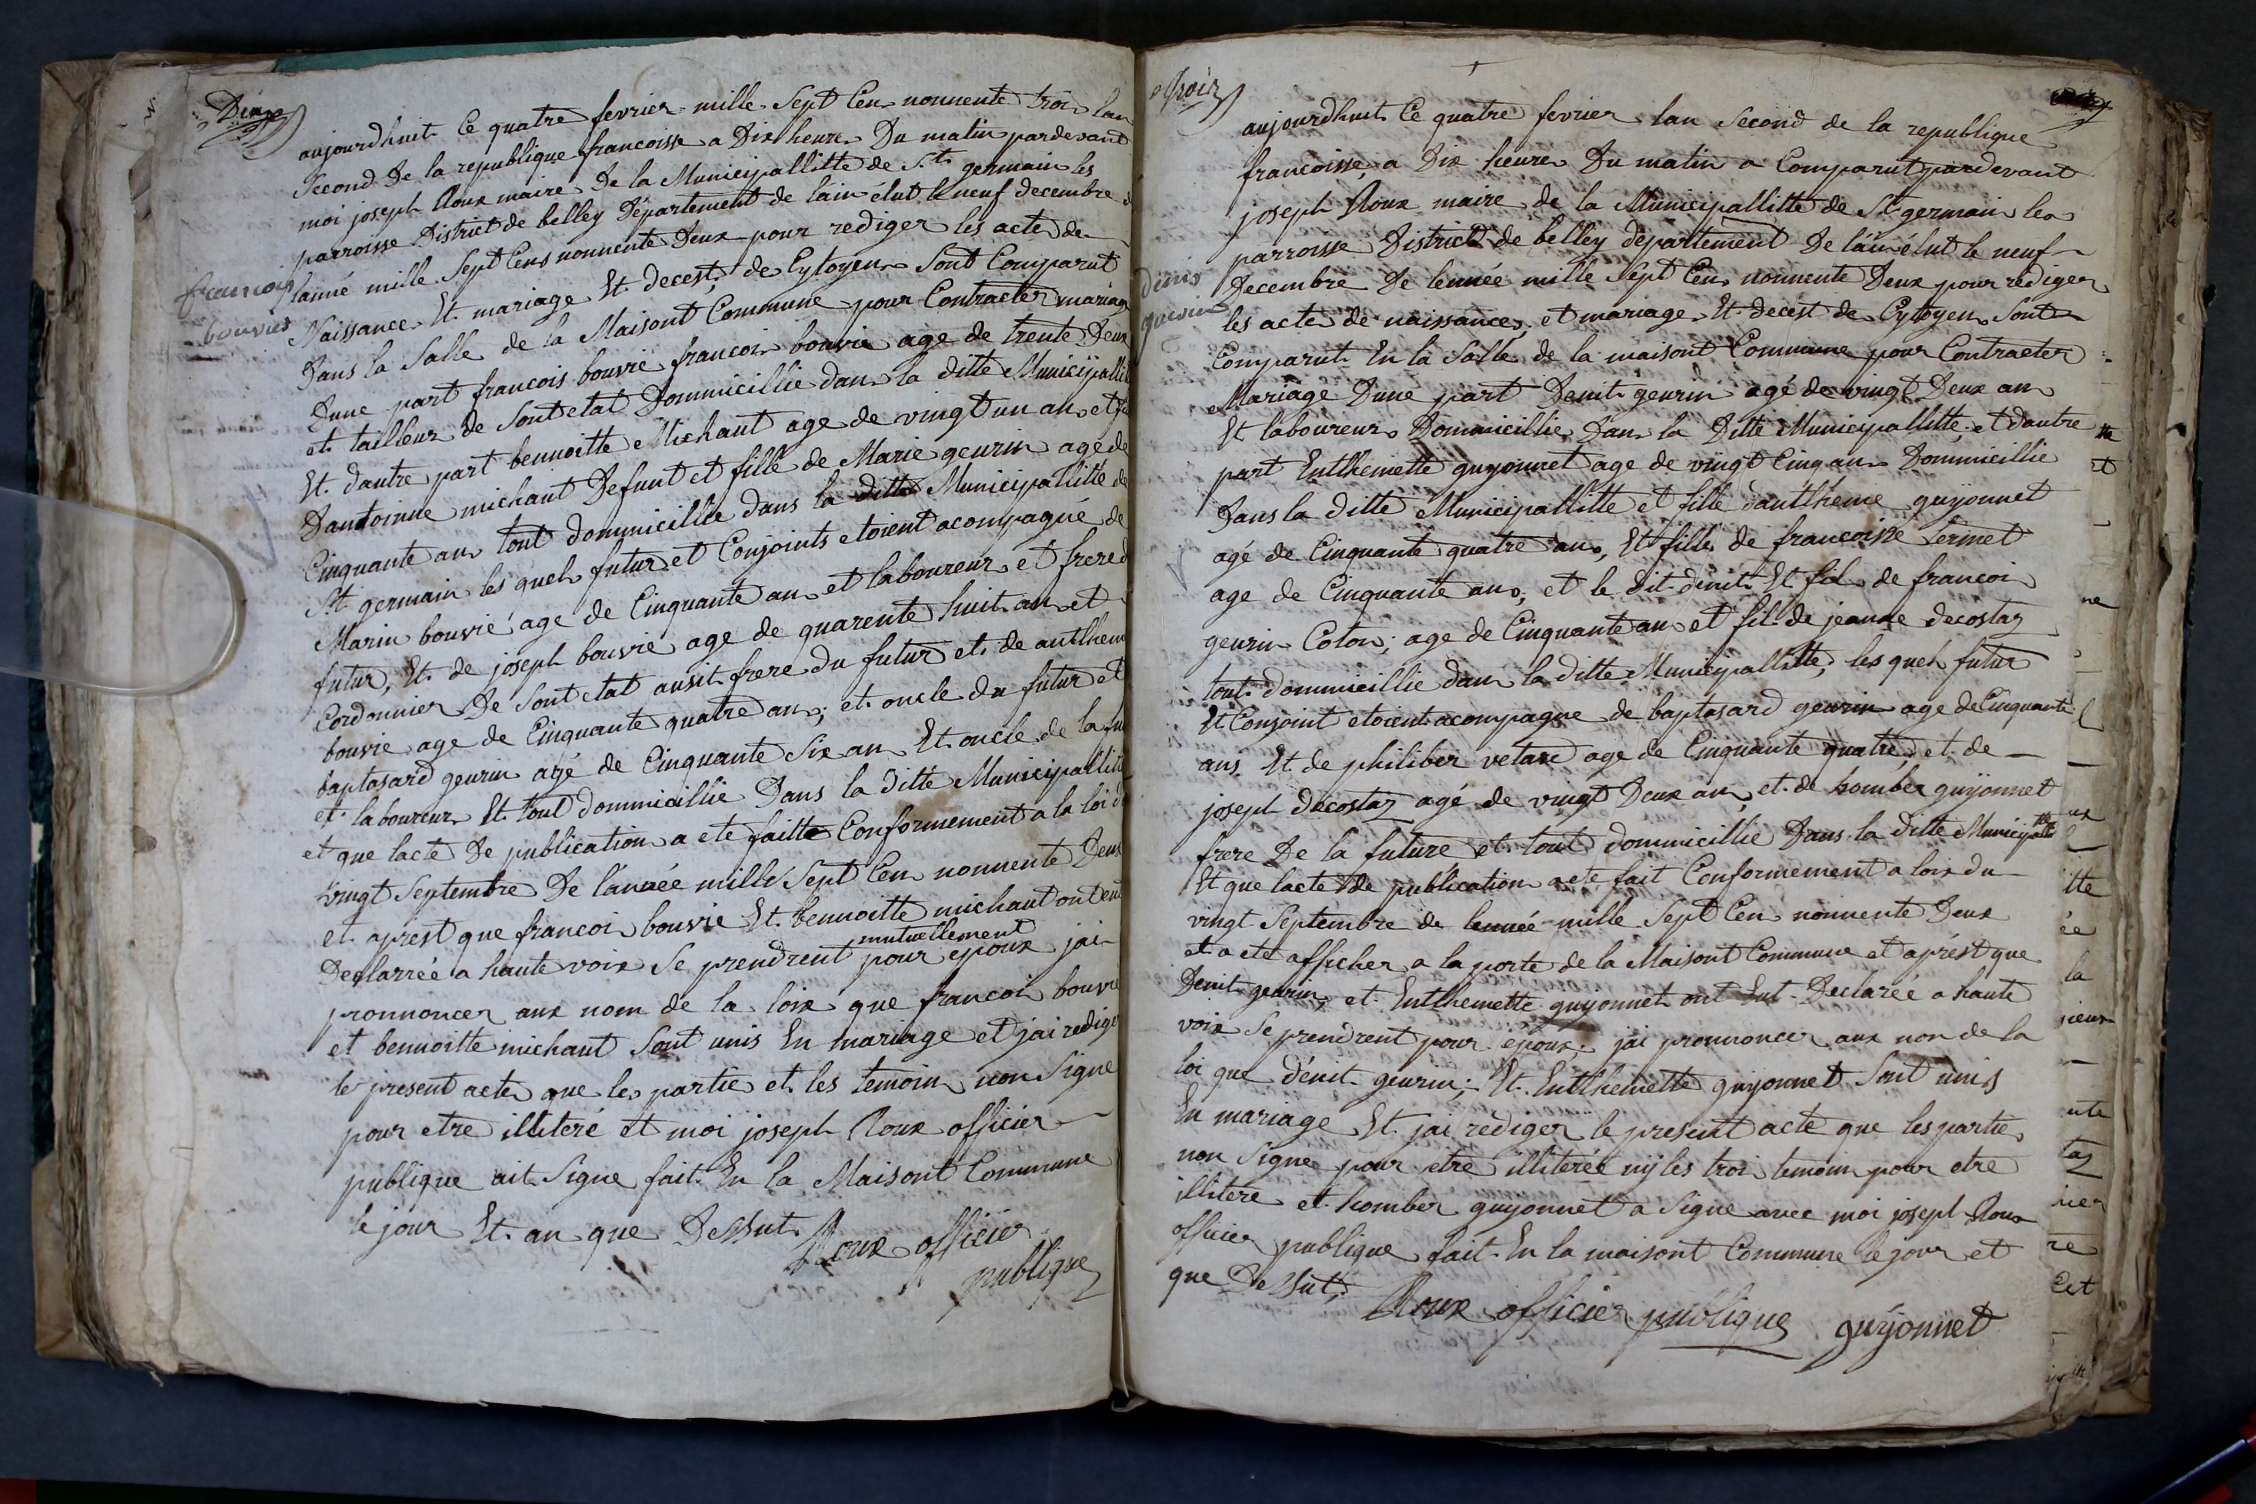 Deuze
aujourdhuit Ce quatre fevrier mille Sept Cen nonnente troi lan
Second De la republique francoisse a Dix heure Du matin pardevant
moi joseph Roux maire De la Municipallitte de St. germain les
parroisse District de belley Département de lain élut le neuf decembre d
lanné mille Sept Cens nonnente Deux pour rediger les acte de
françois
bouvier
Naissance Et mariage Et. decest, de Cytoyen Sont Comparut
Dans la Salle de la Maisont Commune pour Contracter mariage
Dune part francois bouvie francoi bouvie age de trente Deux
et tailleur de Sont etat Dommicillie dan la ditte Municipallit
Et. dautre part bennoitte Michaut age de vingt un an et fi
Dantoinne michaut Defunt et fille de Marie geurin age de
Cinquante an tout dommicillie dans la ditte Municipallitté de
St germain les quels futur et Conjoints etoient acompagné de
Marin bouvié age de Cinquante an et laboureur et frere d
futur, Et. de joseph bouvie age de quarente huit an et
Cordonnier De Sont etat ausit frere du futur et. de anthem
bouvie age de Cinquante quatre an; et oncle du futur et
baptasard geurin agé de Cinquante Six an Et oncle de la fu
et laboureur Et tout dommicillie Dans la ditte Municipallit
et que lacte De publication a ete faitte Conformement a la loi d
vingt Septembre De lannée mille Sept Cen nonnente Deux
et aprest que francoi bouvie Et. bennoitte michaut ont eut
Declarrée a haute voix Se prendrent mutuellement pour epoux jai
pronnoncer aux nom de la loix que francoi bouvie
et bennoitte michaut Sont unis En mariage et jai rediger
le present acte que les partie et les temoin non Signe
pour etre illiteré et moi joseph Roux officier
publique ait Signe fait. En la Maisont Commune
le jour Et. an que Dessut. Roux officier
publique
troix
aujourdhuit Ce quatre fevrier lan Second de la republique
francoisse, a Dix heure Du matin a Comparut pardevant
joseph Roux maire de la Municipallitte de St germain les
parroisse District de belley département De lain élut le neuf
Decembre De lennée mille Sept Cen nonnente Deux pour rediger
denis
guerin
les acte de naissance, et mariage Et decest de Cytoyen Sont
Comparut En la Salle de la maisont Commune pour Contracter
Mariage Dune part Denit geurin agé de vingt Deux an
Et laboureur Dommicillie Dan la Ditte Municipallitte et dautre
part Enthemette guyonnet age de vingt Cinq an Dommicillie
Dans la ditte Municipallitte et fille danthéme guyonnet
agé de Cinquante quatre ans, Et fille de francoisse Sermet
age de Cinquante ans, et le Dit denit Et fil de francoi
geurin Coton; age de Cinquante an et fil de jeanne decostaz
tout dommicillie dan la ditte Municipallitte; les quels futur
Et Conjoint etoient acompagne de baptasard geurin age de Cinquante
ans Et de philiber vetare age de Cinquante quatre et de
joseph decostaz agé de vingt Deux an, et. de homber guyonnet
frere De la future et tout dommicillie Dans la ditte Municipallitte
Et que lacte de publication a ete fait Conformement a loix du
vingt Septembre de lennée mille Sept Cen nonnente Deux
et a ete afficher a la porte de la Maisont Commune et aprést que
Denit geurin et. Enthemette guyonnet ont Eut Declarée a haute
voix Se prendrent pour époux; jai pronnoncer aux non de la
loi que dénit geurin; Et. Enthemette guyonnet Sont unis
En mariage Et jai rediger le present acte que les partie
non Signe pour etre illiterée ny les troi temoin pour etre
illitere et homber guyonnet a Signe avec moi joseph Roux
officier publique fait. En la maisont Commune le jour et
que Dessut; Roux officier publique guyonnet